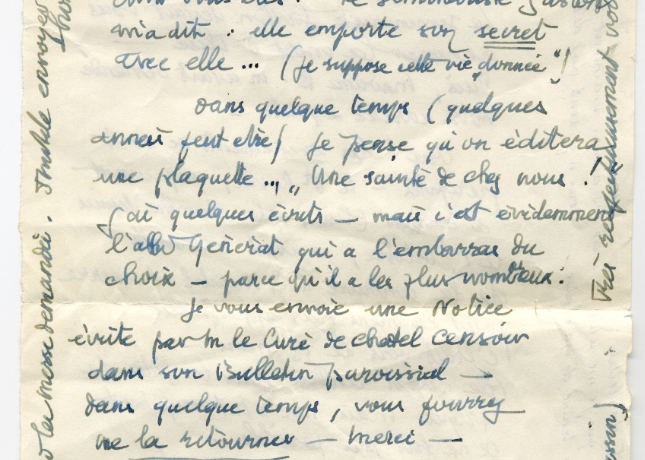 m'a dit : elle emporte son secret
avec elle... (je suppose cette vie "donnée")
Dans quelque temps (quelques
années peut etre) je pense qu'on éditera
une plaquette..., "Une sainte de chez nous !
(ai quelques écrits — mais c'est évidemment
l'abbé Généviat qui a l'embarras du
choix — parce qu'il a les plus nombreux :
je vous envoie une Notice
écrite par M le Curé de chatel Censoir
dans son Bulletin paroissial —
dans quelque temps, vous pourrez
me la retourner — merci —
la messe demandée. Inutile envoyer
Très respectueusement